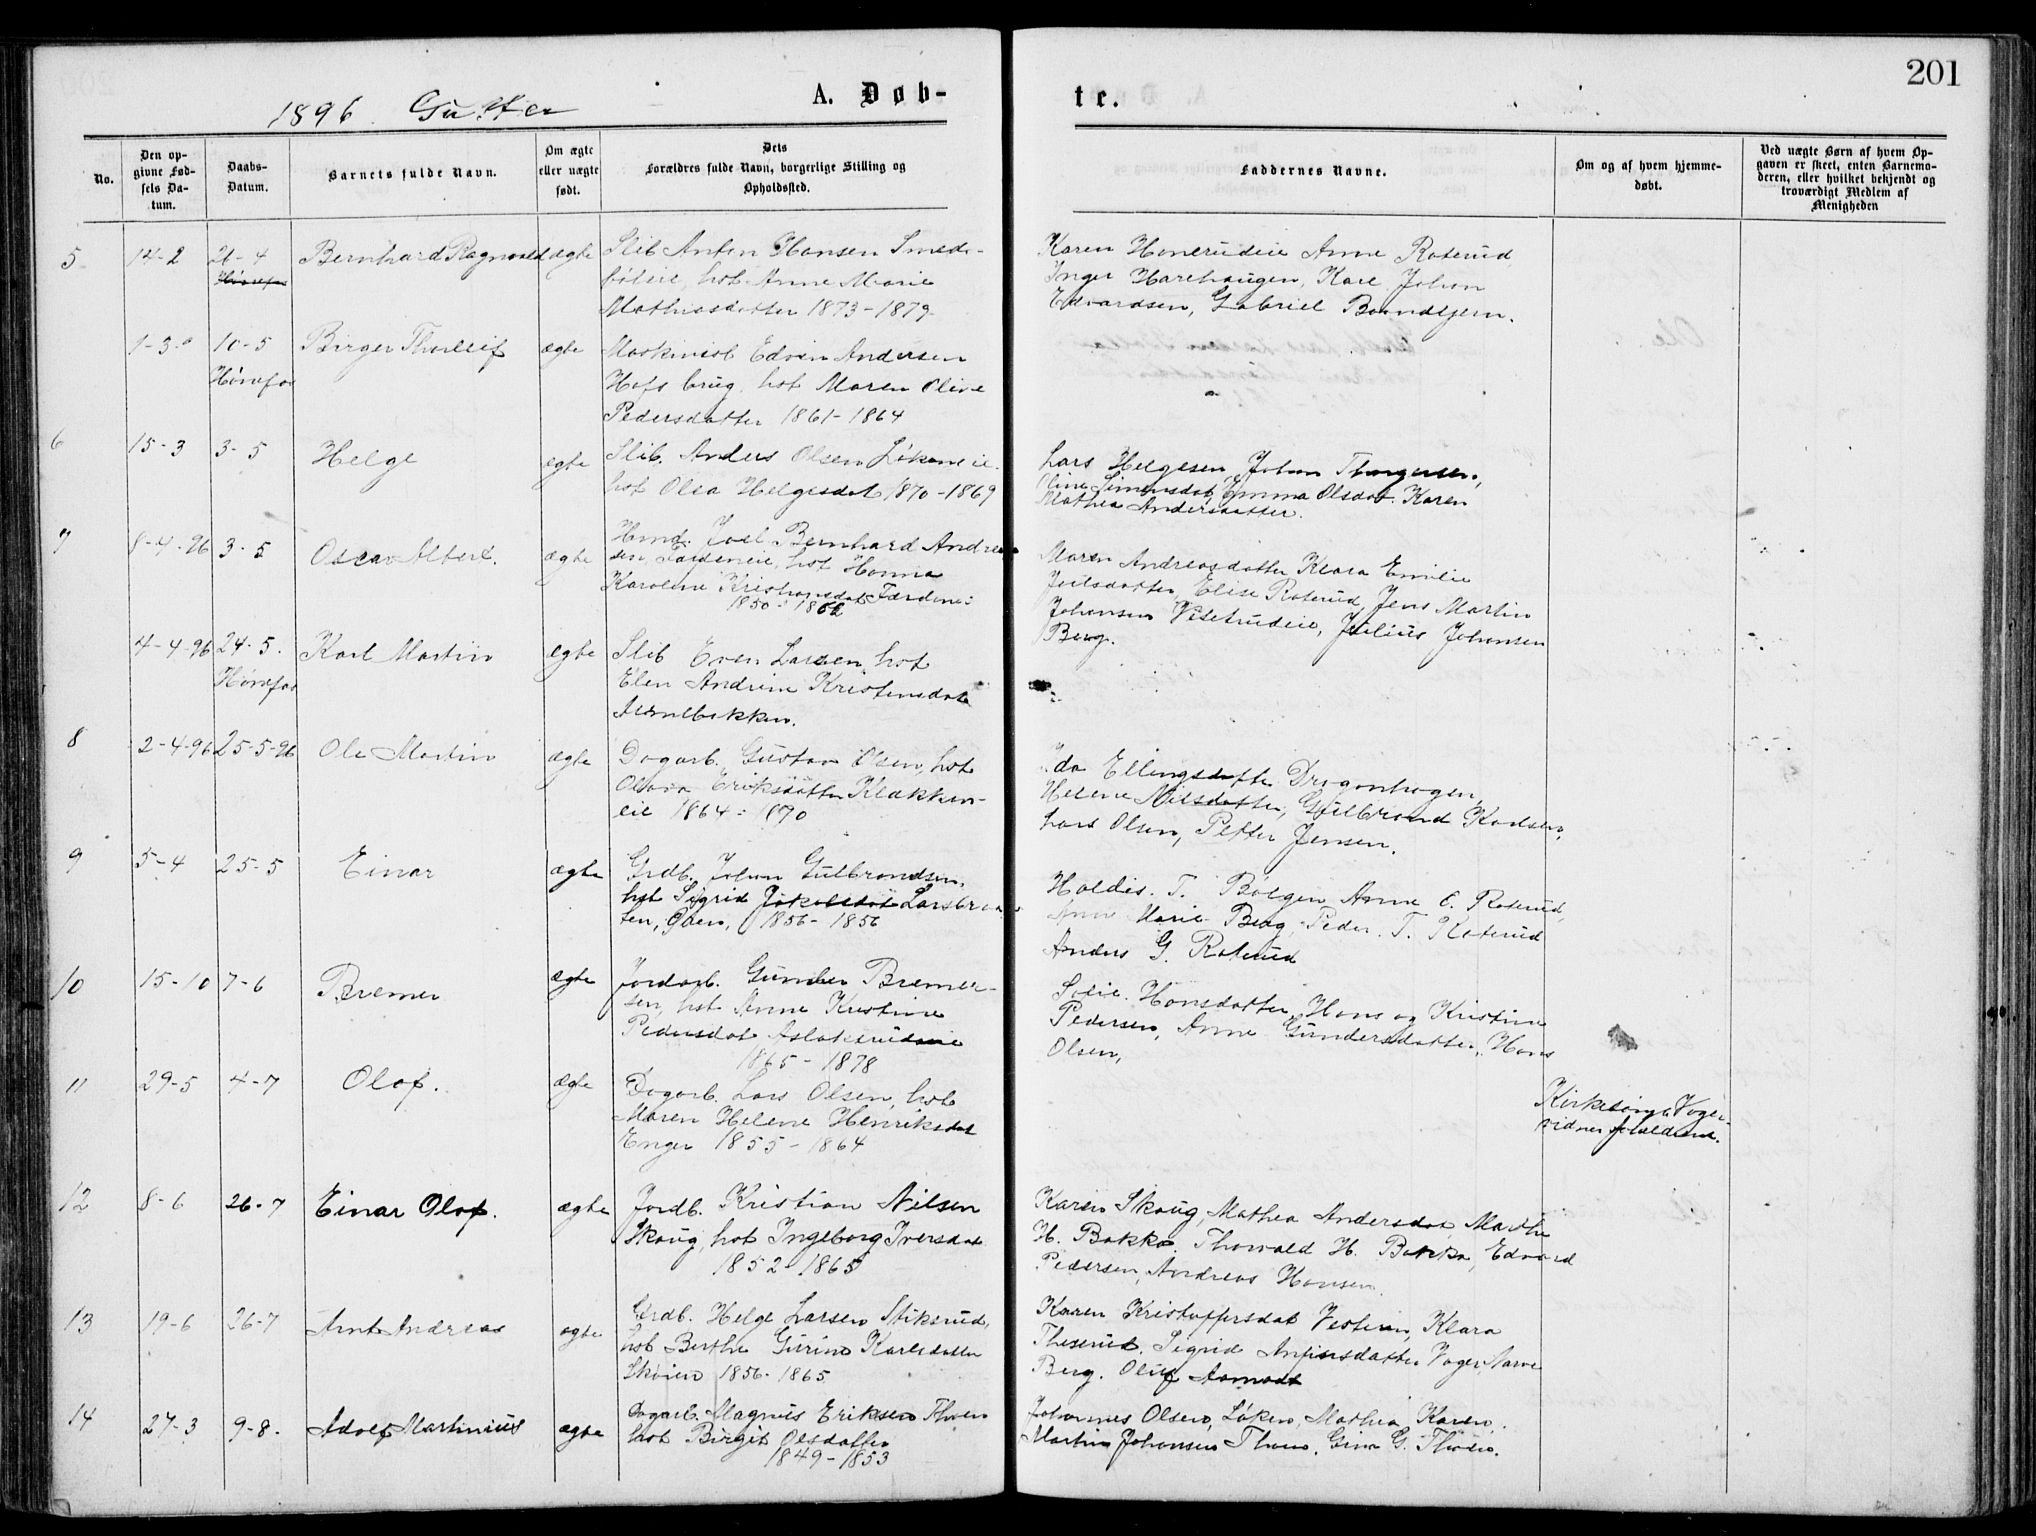 201
1896. Gutter
A. Døb-
te.
No.
Den op-
givne Fød-
sels Da-
tum.
Daabs-
Datum.
Barnets fulde Navn.
Om ægte
eller uægte
født.
Dets
Forældres fulde Navn, borgerlige Stilling og
Opholdssted.
Faddernes Navne.
Om og af hvem hjemme-
døbt.
Ved uægte Børn af hvem Op-
gaven er skeet, enten Barnemo-
deren, eller hvilket bekjendt og
troværdigt Medlem af
Menigheden
5 14-2 26-4 Bernhard Ragnvald ægte Slib Anton Hansen Smeds-
Hønefos
hst Anne Marie
Mathiasdatter 1873-1879
Karen Honerudeie Anne Roterud
Inger Harehaugen, Karl Johan
Edvardsen, Gabriel Bjørntjern.
1-3 10-5 Birger Thorleif ægte Maskinist Edvin Andersen
Hønefos
Hofs brug. hst Maren Oline
Pedersdatter 1861-1864
6 15-3 3-5 Helge ægte Slib. Anders Olsen Løkeneie
hst Olea Helgesdat 1870-1869
Lars Helgesen, Johan Thorgersen,
Oline Simensdat, Emma Olsdat. Karen
Mathea Andersdatter.
7 8-4-96 3-5 Oscar Albert. ægte Hmd. Joel Bernhard Andrea
sen, Færdeneie, hst Hanna
Karoline Kristiansdat Færdenei
1850-1862
Maren Andreasdatter Klara Emilie
Joelsdatter, Elise Roterud, Jens Martin
Johansen Viseterudeie, Julius Johansen
Berg.
4-4-96 24-5. Karl Martin ægte Slib Even Larsen hst
Hønefos
Elen Andrine Kristensdat
8 2-4-96 25-5-96 Ole Martin ægte Dagarb. Gustav Olsen, hst
Olava Eriksdatter Klækken-
eie 1864-1870
Ida Ellingsdatter Dragonhagen,
Helene Nilsdatter, Gulbrand Karlsen,
Lars Olsen, Petter Jensen.
9 5-4 25-5 Einar ægte Grdb. Johan Gulbrandsen,
hst Sigrid Larsbraa
ten, 1856-1856
Haldis. T. Bølgen Anne O. Roterud,
Anne Marie Berg, Peder. T. Roterud
Anders G. Roterud
10 15-10 7-6 Bremer ægte Jordarb. Gunder Bremer-
sen, hst Anne Kristine
Pedersdat Aslaksrudeie
1865-1878
Sofie Hansdatter, Hans og Kristine
Pedersen, Anne Gundersdatter, Hans
Olsen,
11 29-5 4-7 Olaf. ægte Dagarb. Lars Olsen, hst
Maren Helene Henriksdat
Enger 1855-1864
Kirkesang. Vager
vidner forældrene.
12 8-6 26-7 Einar Olaf. ægte Jordb. Kristian Nilsen
Skaug, hst Ingeborg Iversdat
1852-1865
Karen Skaug, Mathea Andersdat, Marthe
H. Bakka. Thorvald H. Bakka, Edvard
Pedersen, Andreas Hansen.
13 19-6 26-7 Arnt Andreas ægte Grdb. Helge Larsen Stiksrud,
hst Berthe Gurine Karlsdatter
Skøien 1856-1865
Karen Kristoffersdat Vestern, Klara
Theserud, Sigrid Anfinsdatter Vager, Narve
Berg. Oluf Aamodt
14 27-3 9-8. Adolf Martinius ægte Dagarb. Magnus Eriksen Thoen
hst Birgit Olsdatter
1849-1853
Johannes Olsen, Løken, Mathea Karen,
Martin Johansen Thoen, Gina G. Thoen.